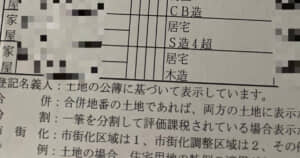 家
屋
家
屋
家
屋
CB造
居宅
S造4超
居宅
木造
登記名義人：土地の公簿に基づいて表示しています。
合　併：合併地番の土地であれば、両方の土地に表示が
分　割：一筆を分割して評価課税されている場合表示が
市街化：市街化区域は1、市街化調整区域は2、その他
例：土地の場合